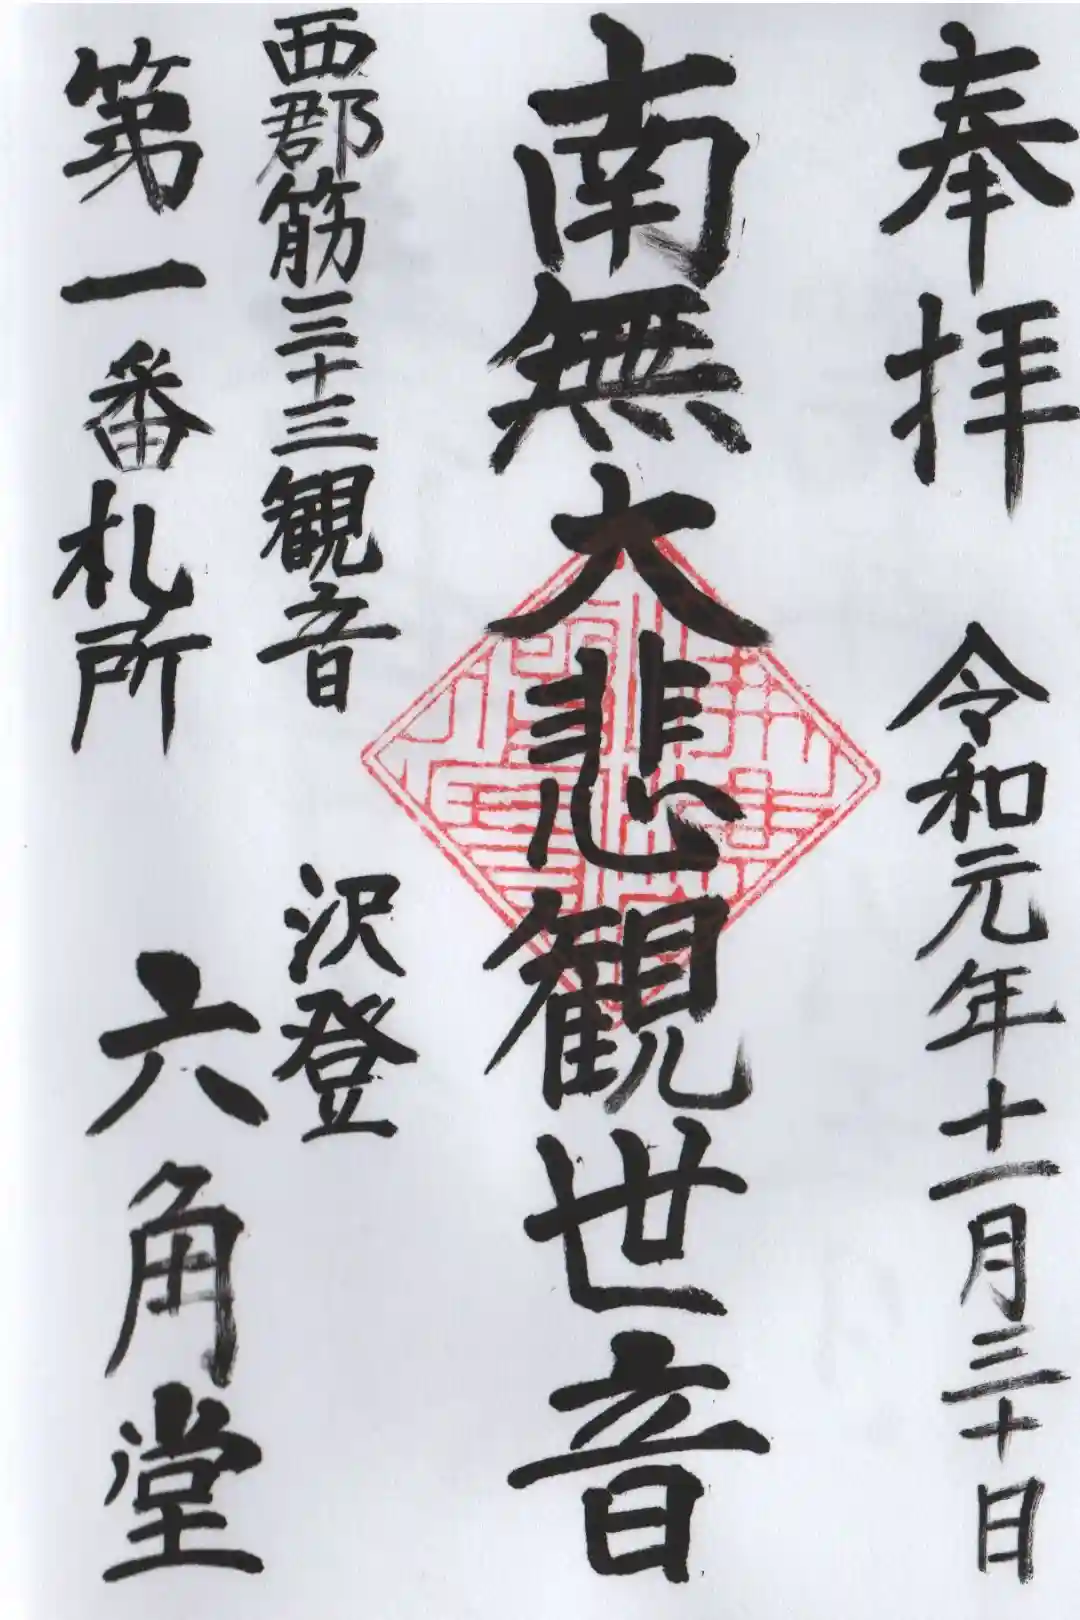 奉拝 令和元年十一月三十日
南無大悲観世音
西郡筋三十三観音 沢登
第一番札所 六角堂